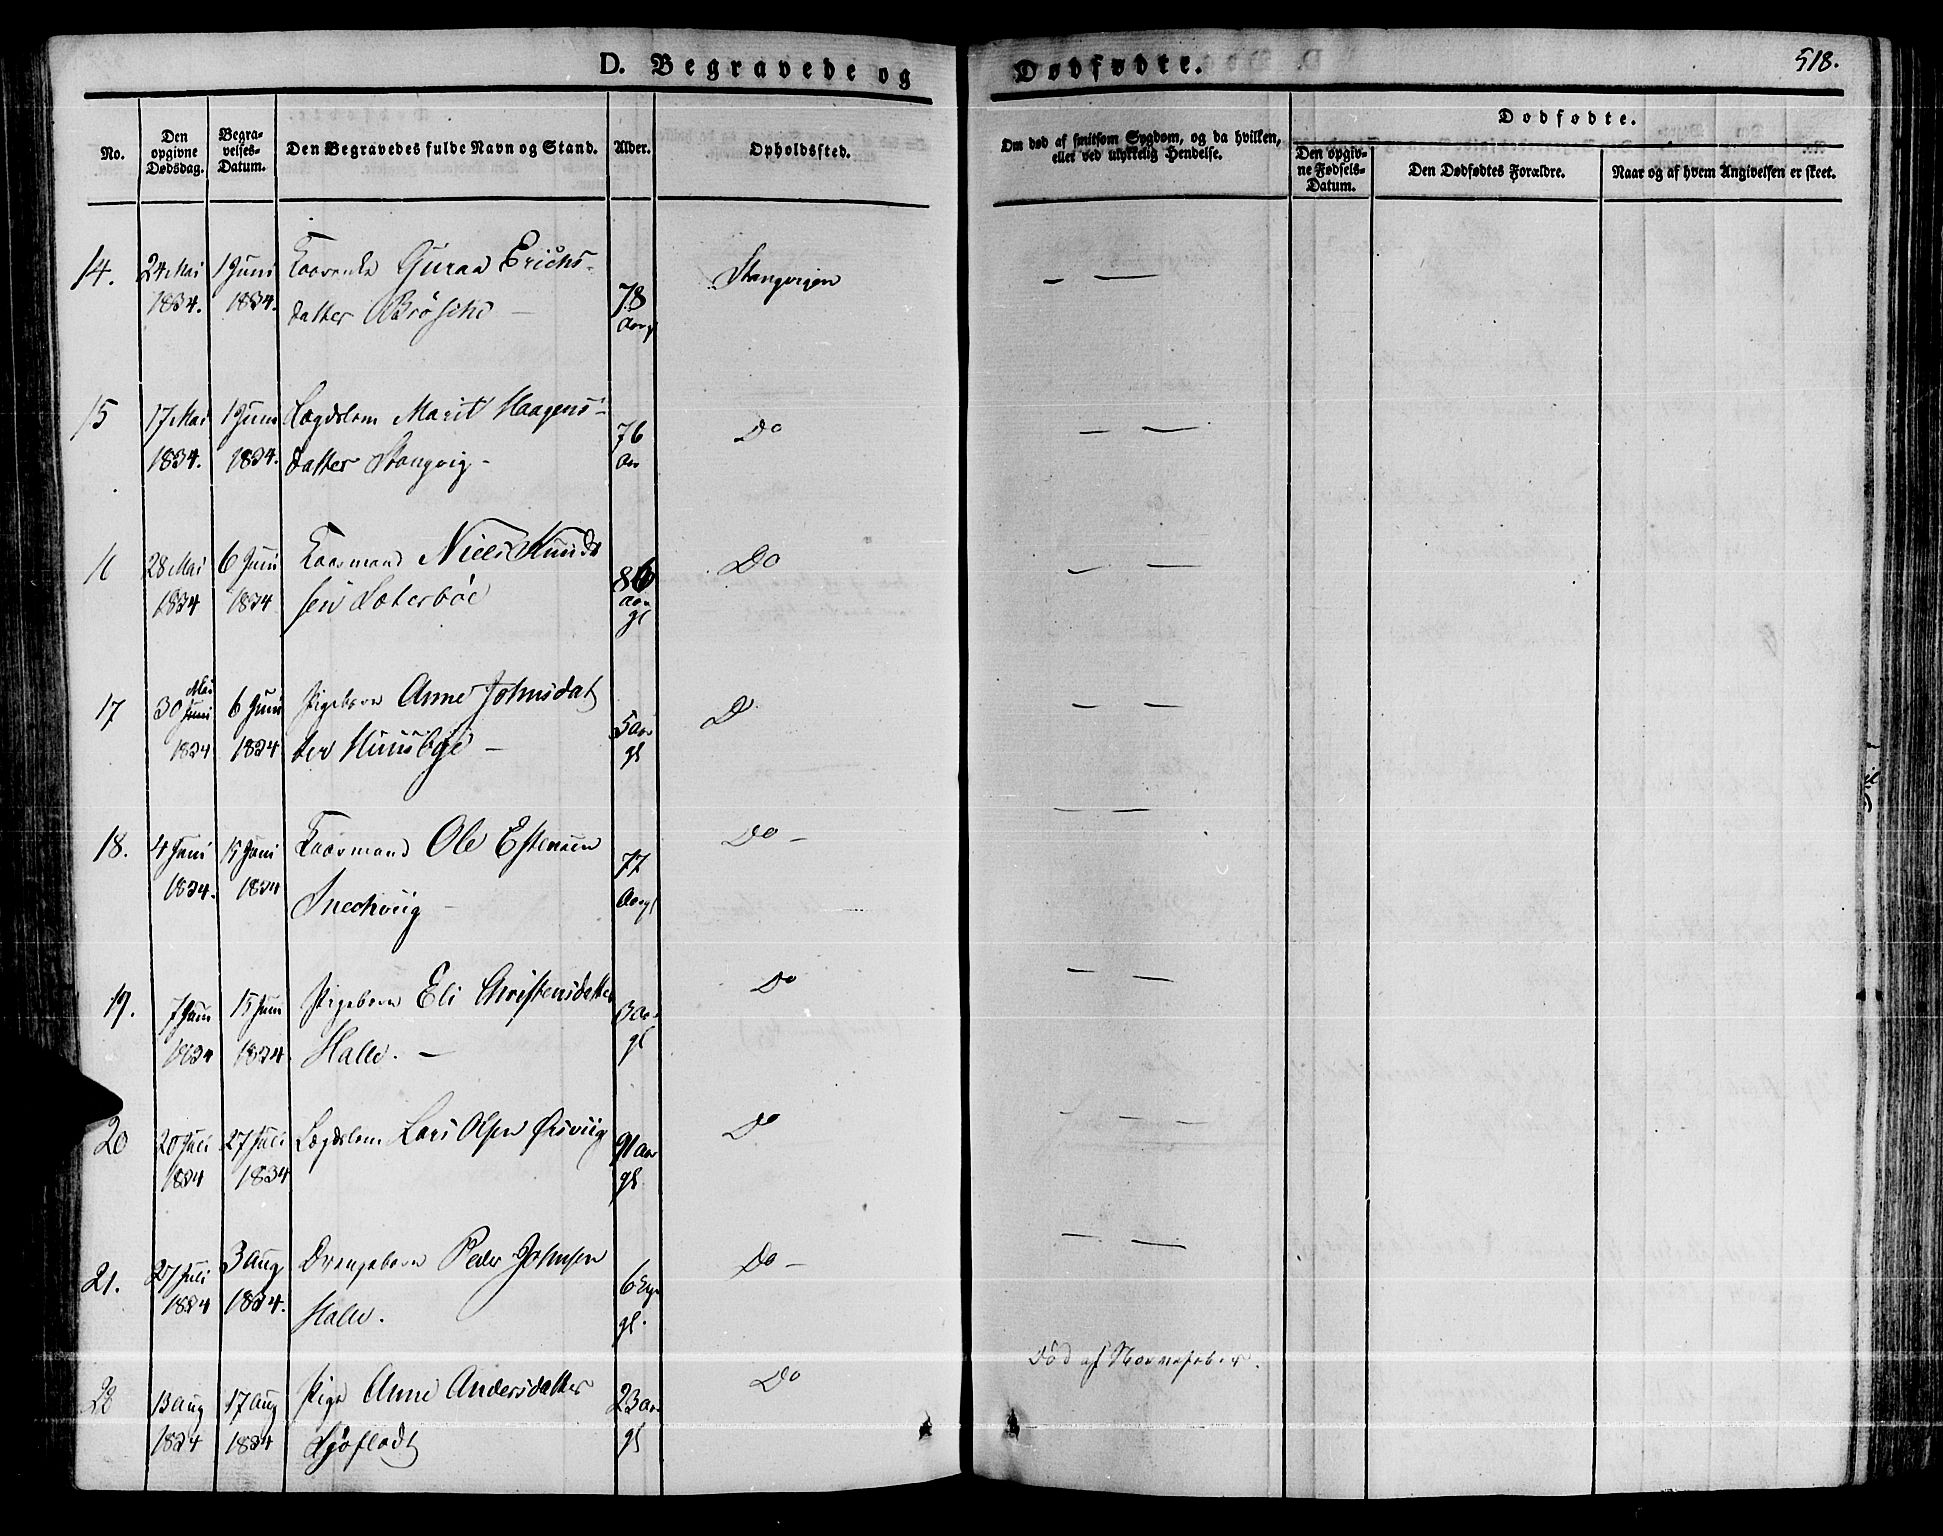 D. Begravede og Dødfødte.
518.
No.
Den opgivne Dødsdag.
Begravelses-Datum.
Den Begravedes fulde Navn og Stand.
Alder.
Opholdssted.
Om død af smitsom Sygdom, og da hvilken,
eller ved ulykkelig Hendelse.
Dødfødte.
Den opgivne Fødsels-Datum.
Den Dødfødtes Forældre.
Naar og af hvem Angivelsen er skeet.
14. 24 Mai 1 Juni Guraa Erichs- Stangvigen — —
1834. 1834. datter Brøske — 78 Aar gl
15 17 Mai 1 Juni Lægdslem Marit Haagens- 76 Do — —
1834. 1834. datter Stangvig -
16 28 Mai 6 Juni Kaarmand Niels Knud 86 Do — —
1834 1834 sen Sæterbøe Aar gl
17 30 Mai Juni 6 Juni Pigebarn Anne Johnsdat 5 Aar D — —
1834 1834 ter Huusbye — gl
18. 4 Juni 15 Juni Kaarmand Ole Estensen 77 Do - — —
1834. 1834 Snechvig — Aar gl
19. 7 Juni 15 Juni Pigebarn Eli Christensdatter 3 Aar Do — —
1834 1834 Halle. — gl
20 20 Juli 27 Juli Lægdslem Lars Olsen Ørsviig 91 Aar Do — — —
1834 1834 gl
21. 27 Juli 3 Aug Drengebarn Peder Johnsen 6 gl. Do - — —
1834 1834. Halle.
22 13 Aug 17 Aug Pige Anne Andersdatter 23 Aar Do Død af Nervefeber.
1834 1834 gl